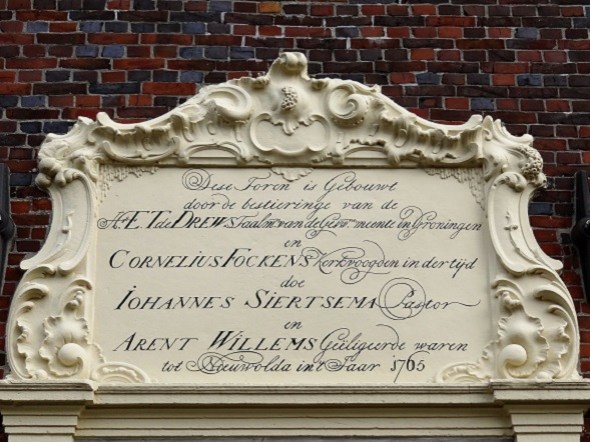 Dese Toren is Gebouwt
door de bestieringe van de
Hr E T de DREWS Taalm van de Gesw meente in Groningen
en
CORNELIUS FOCKENS Kerkvoogden in der tijd
doe
IOHANNES SIERTSEMA Pastor
en
ARENT WILLEMS Geëligeerde waren
tot Nieuwolda int Jaar 1765